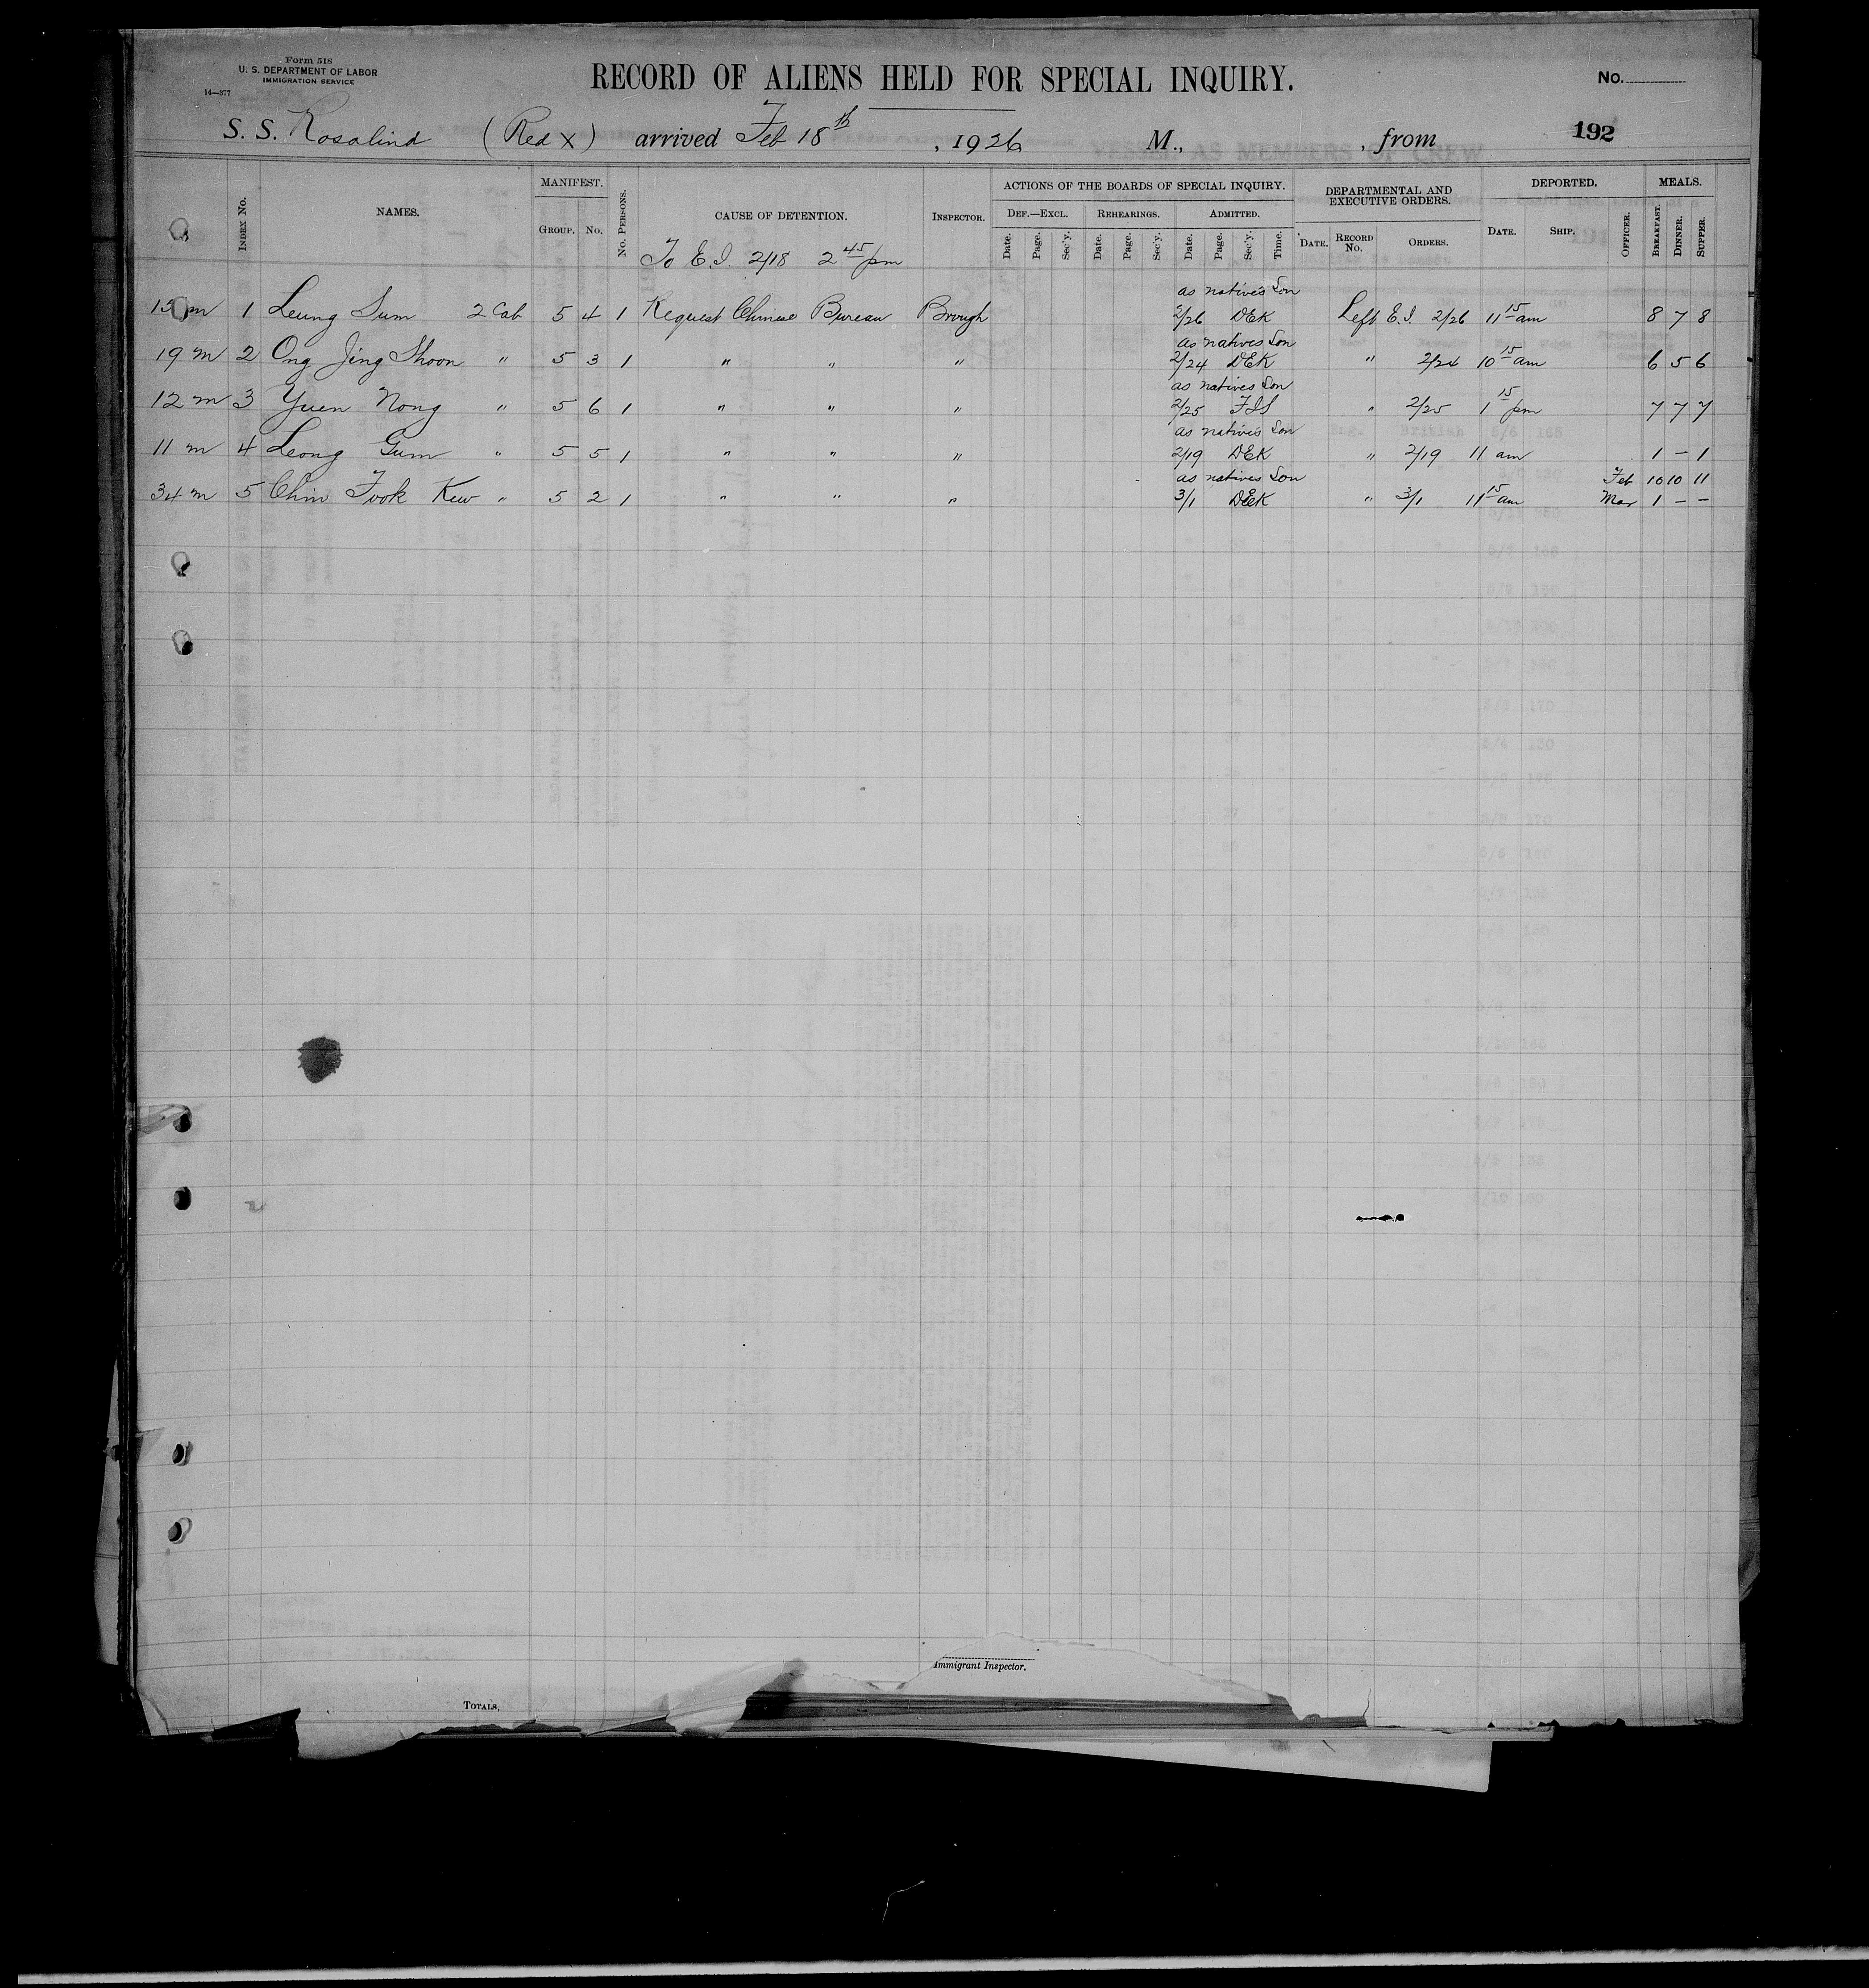 Form 518
U. S. DEPARTMENT OF LABOR
IMMIGRATION SERVICE
14—377
RECORD OF ALIENS HELD FOR SPECIAL INQUIRY.
No.
S. S. Rosalind (Red X) arrived Feb 18th, 1926 M., , from 192
INDEX No. NAMES. MANIFEST. GROUP. No. No. PERSONS. CAUSE OF DETENTION. INSPECTOR. ACTIONS OF THE BOARDS OF SPECIAL INQUIRY. DEF.—EXCL. Date. Page. Sec'y. REHEARINGS. Date. Page. Sec'y. ADMITTED. Date. Page. Sec'y. Time. DEPARTMENTAL AND EXECUTIVE ORDERS. DATE. RECORD No. ORDERS. DEPORTED. DATE. SHIP. OFFICER. MEALS. BREAKFAST. DINNER. SUPPER.
To E.I. 2/18 2 45 pm
as natives Son
m 1 Leung Sum 2 Cab 5 4 1 Request Chinese Bureau Brough 2/26 DEK Left E.I. 2/26 11 15 am 8 7 8
as natives Son
19 m 2 Ong Jing Shoon " 5 3 1 " " " 2/24 DEK " 2/24 10 15 am 6 5 6
as natives Son
12 m 3 Yuen Nong " 5 6 1 " " " 2/25 FJS " 2/25 1 15 pm 7 7 7
as natives Son
11 m 4 Leong Gum " 5 5 1 " " " 2/19 DEK " 2/19 11 am 1 – 1
as natives Son Feb 10 10 11
34 m 5 Chin Fook Kew " 5 2 1 " " " 3/1 DEK " 3/1 11 15 am Mar 1 – –
Immigrant Inspector.
TOTALS,